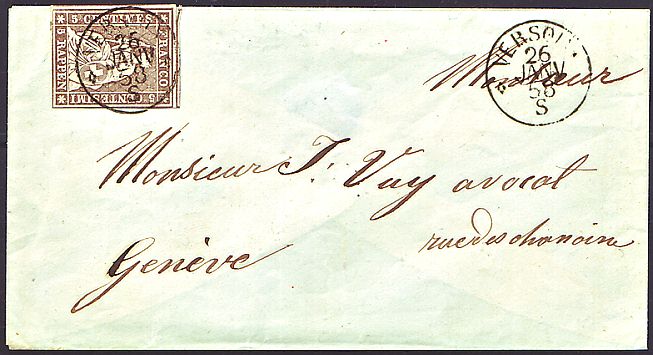 5 CENTIMES
FRANCO
5 CENTESIMI
5 RAPPEN
26
JANV
58
S
VERSOIX
26
JANV
58
S
Monsieur
Monsieur J. Vuy avocat
rue des chanoine
Genève